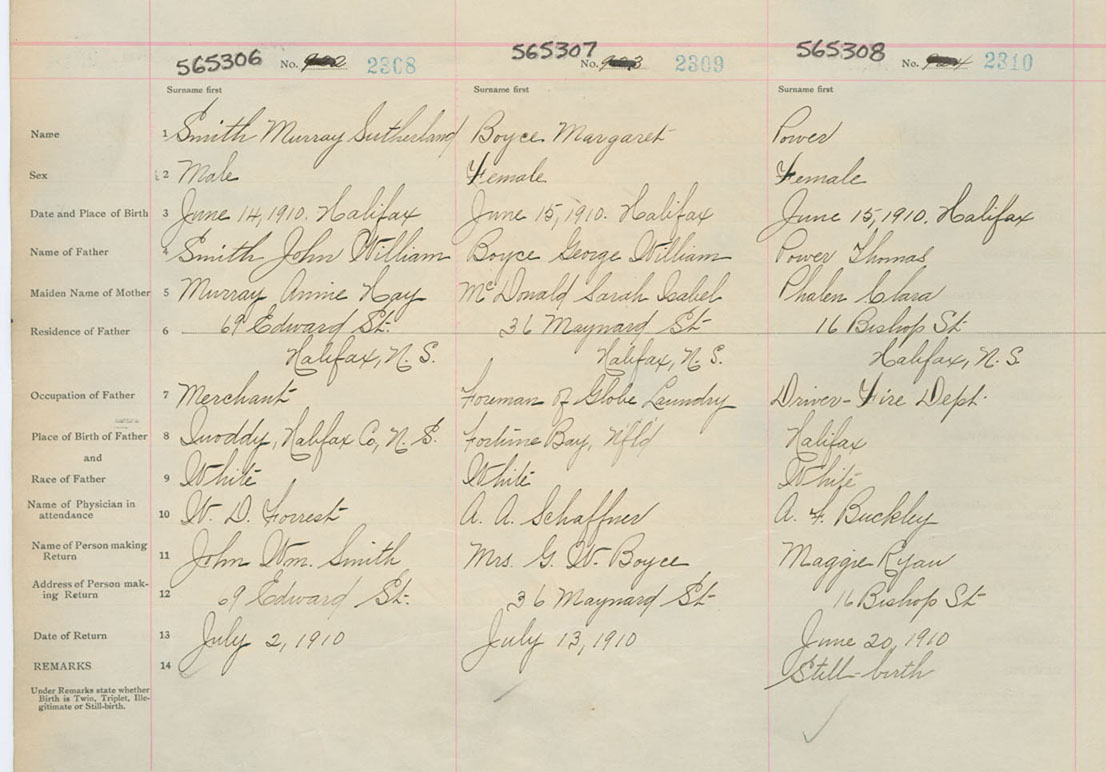 565306 No. 2308 565307 No. 2309 565308 No. 2310
Surname first Surname first Surname first
Name 1 Smith Murray Sutherland Boyce Margaret Power
Sex 2 Male Female Female
Date and Place of Birth 3 June 14, 1910. Halifax June 15, 1910. Halifax June 15, 1910. Halifax
Name of Father 4 Smith John William Boyce George William Power Thomas
Maiden Name of Mother 5 Murray Annie Hay McDonald Sarah Isabel Phalen Clara
Residence of Father 6 69 Edward St. 36 Maynard St 16 Bishop St
Halifax, N.S. Halifax, N.S. Halifax, N.S.
Occupation of Father 7 Merchant Foreman of Globe Laundry Driver - Fire Dept.
Place of Birth of Father 8 Quoddy, Halifax Co, N.S. Fortune Bay, Nfld Halifax
and
Race of Father 9 White White White
Name of Physician in
attendance 10 W. D. Forrest A. A. Schaffner A. F. Buckley
Name of Person making
Return 11 John Wm. Smith Mrs. G. W. Boyce Maggie Ryan
Address of Person mak-
ing Return 12 69 Edward St. 36 Maynard St 16 Bishop St
Date of Return 13 July 2, 1910 July 13, 1910 June 20, 1910
REMARKS 14 Still-birth
Under Remarks state whether
Birth is Twin, Triplet, Ille-
gitimate or Still-birth.